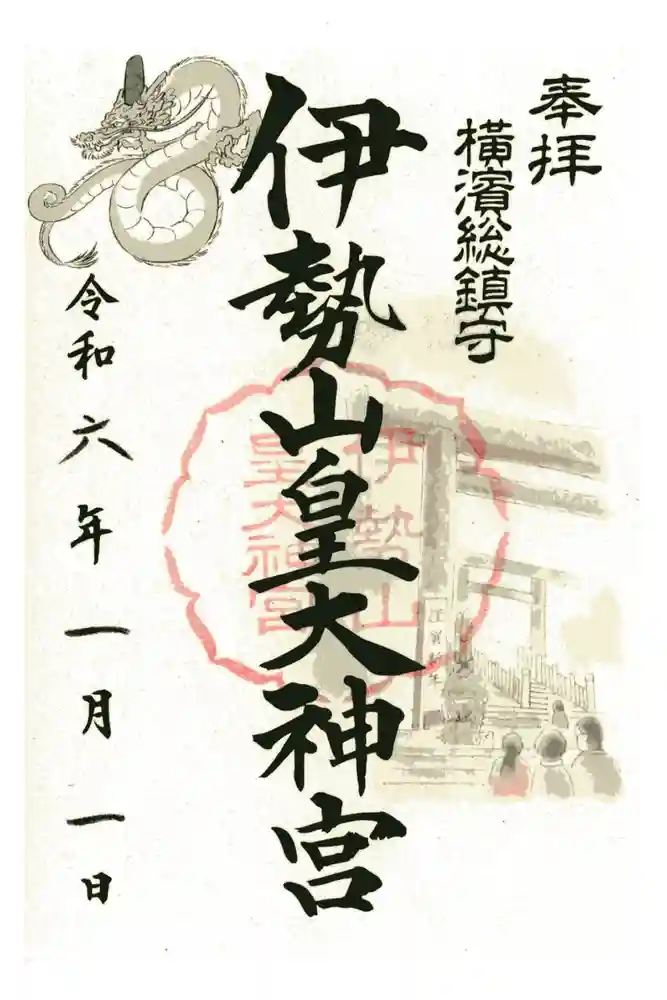 奉拝
横濱総鎮守
伊勢山皇大神宮
伊勢山
皇大神宮
謹賀新年
令和六年一月一日